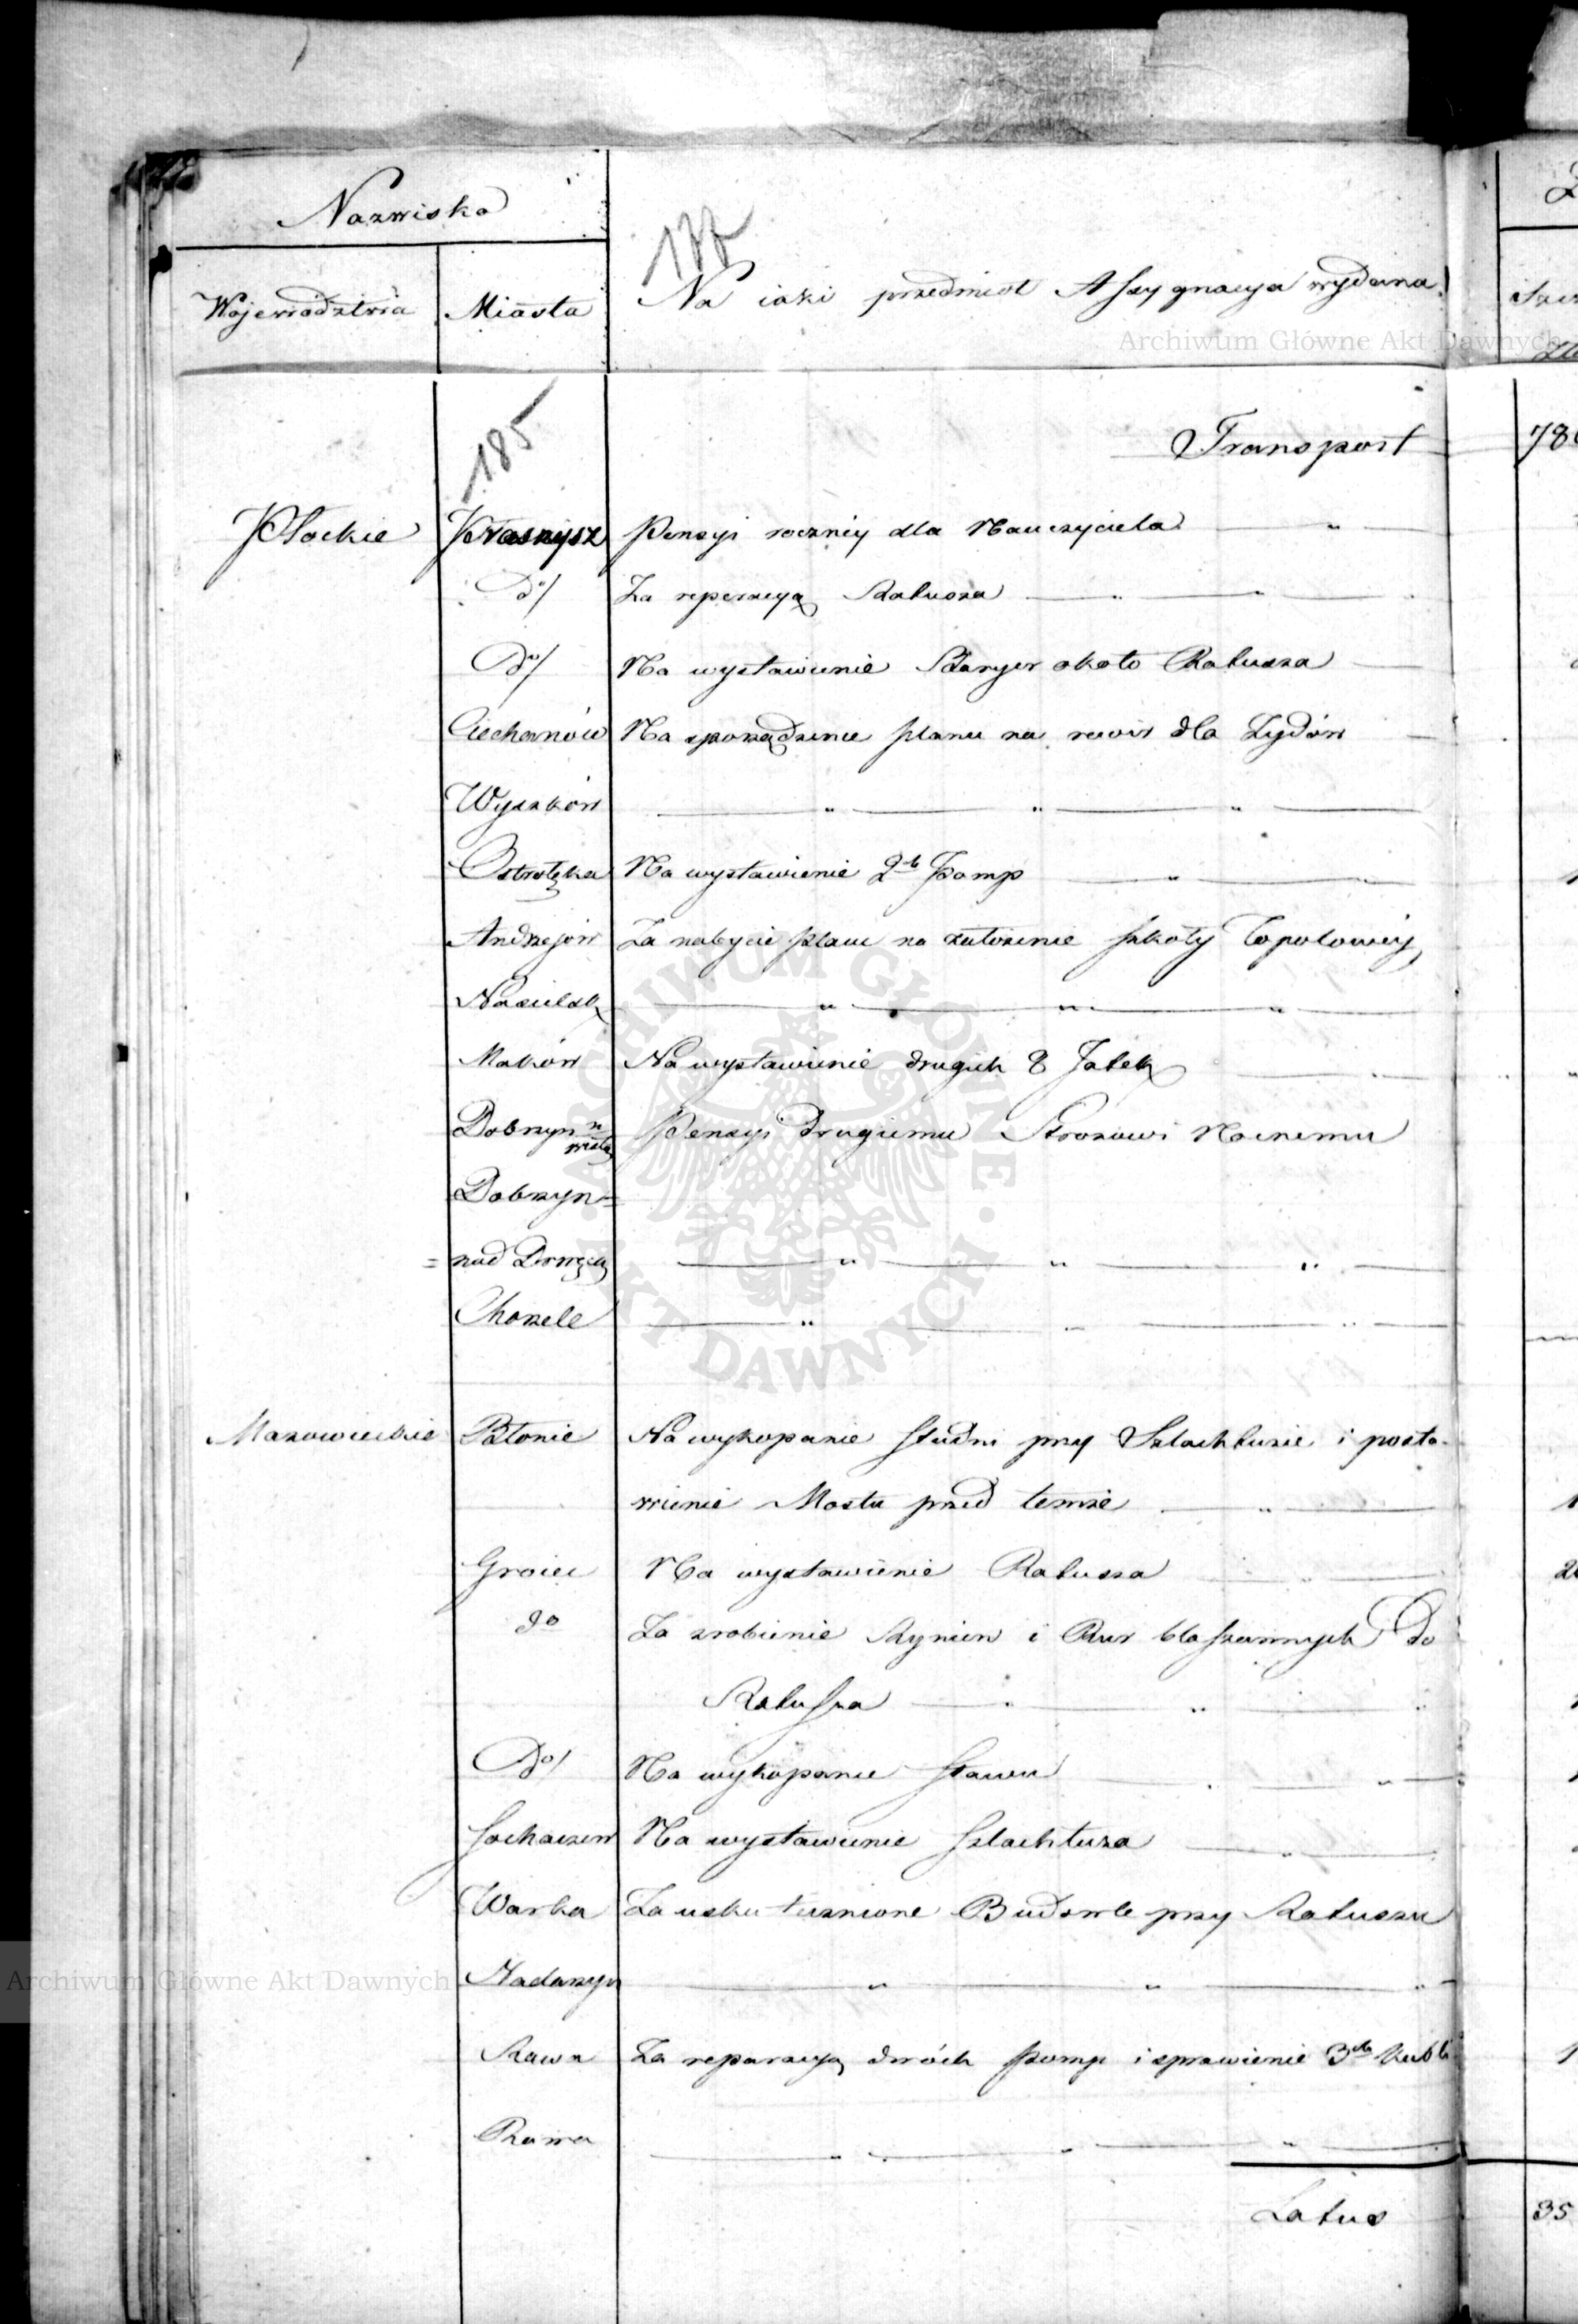 Nazwiska
177
Wojewodztwa Miasta Na iaki przedmiot Assygnacya wydana
Archiwum Główne Akt Dawnych
185
Transport 78
Płockie Prasnysz Pensyi roczniey dla Nauczyciela "
Do/ Za reperacyą Ratusza
Do/ Na wystawienie Baryer około Ratusza
Ciechanów Na sporządzenie planu na rewir dla Żydów
Wyszków " " "
Ostrołęka Na wystawienie 2ch Pomp "
Andrzejow Za nabycie placu na założenie szkoły Topolowey
Nasielsk " " "
Maków Na wystawienie drugich 8 Jatek
Dobrzyn n
Wisłą Pensyi drugiemu Strozowi Nocnemu
Dobrzyn=
=nad Drwęcą " " "
Chorzele " " "
Mazowieckie Błonie Na wykopanie studni przy Szlachtuzie i posta-
wienie Mostu przed temże "
Groiec Na wystawienie Ratusza
do Za zrobienie Rynien i Rur blaszannych do
Ratusza " "
Do/ Na wykopanie stawu "
Sochaczew Na wystawienie Szlachtuza
Warka Za uskutecznione Budowle przy Ratuszu
Nadarzyn " " "
Rawa Za reparacyą dwóch pomp i sprawienie 3ch kubłi
Rawa " " "
Latus 35
ARCHIWUM GŁÓWNE AKT DAWNYCH
Archiwum Główne Akt Dawnych